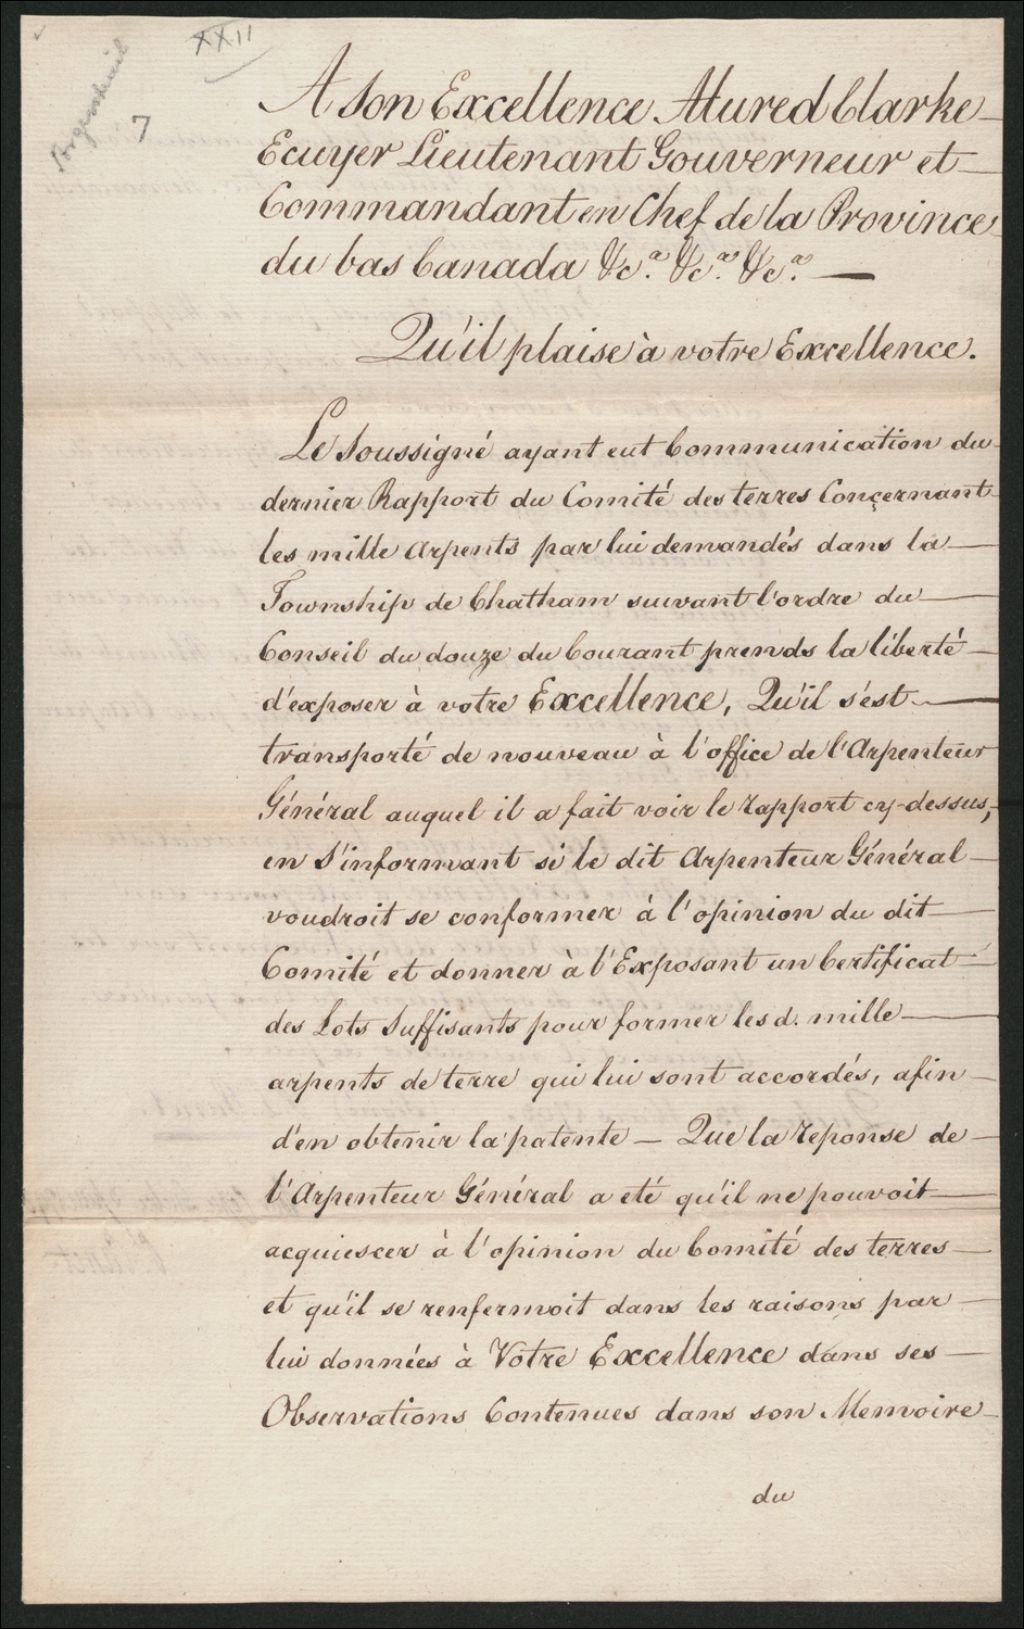 XXII
7
A Son Excellence Alured Clarke
Ecuyer Lieutenant Gouverneur et
Commandant en Chef de la Province
du bas Canada &c.a &c.a &c.a —
Qu'il plaise à votre Excellence.
Le Soussigné ayant eut Communication du
dernier Rapport du Comité des terres Conçernant
les mille Arpents par lui demandés dans la
Township de Chatham suivant l'ordre du
Conseil du douze du Courant prends la liberté
d'exposer à votre Excellence, Qu'il s'est
transporté de nouveau à l'office de l'Arpenteur
Général auquel il a fait voir le rapport cy-dessus,
en S'informant si le dit Arpenteur Général
voudroit se conformer à l'opinion du dit
Comité et donner à l'Exposant un Certificat
des Lots Suffisants pour former les d. mille
arpents de terre qui lui sont accordés, afin
d'en obtenir la patente — Que la reponse de
l'Arpenteur Général a eté qu'il ne pouvoit
acquiescer à l'opinion du Comité des terres
et qu'il se renfermoit dans les raisons par
lui données à Votre Excellence dans ses
Observations Contenues dans son Memoire
du